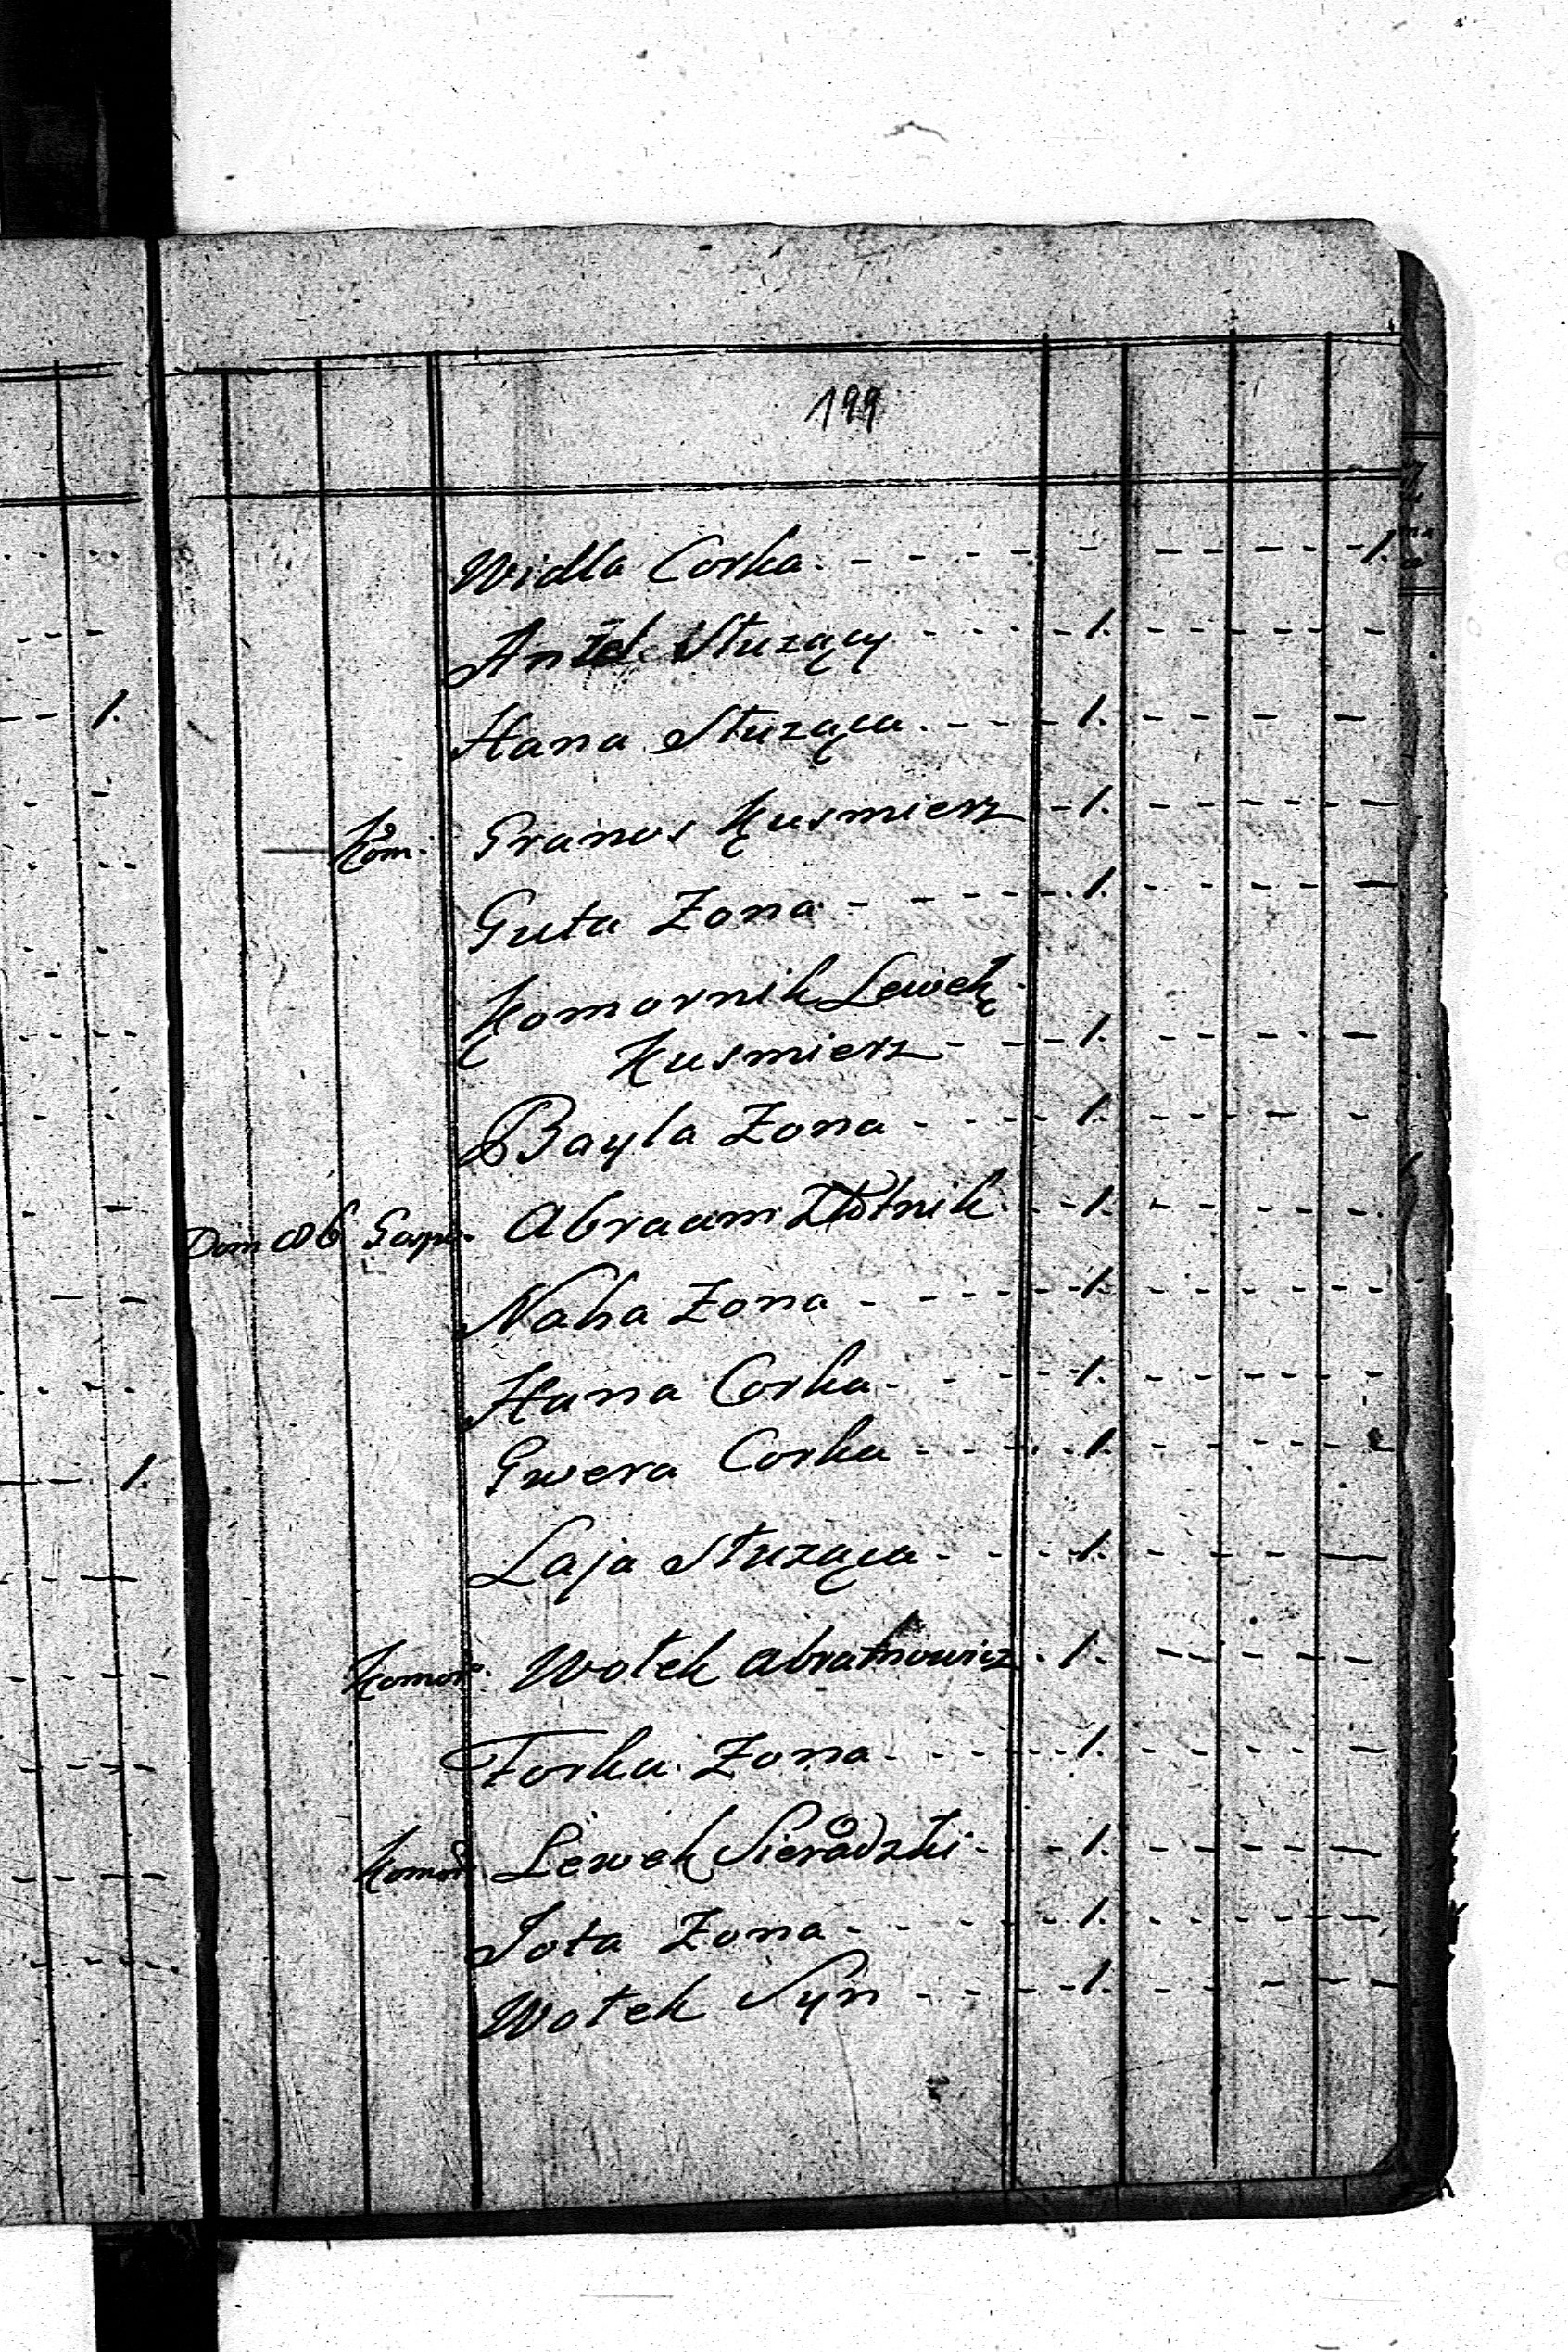 199
Widla Corka. - - - - - - - - - - 1.
Anzel Służący - - - - 1. - - - - - -
Hana Służąca. - - - 1. - - - - -
Kom. Granos Kusmierz - 1. - - - - - -
Guta Zona - - - - - 1. - - - - -
Komornik Lewek
Kusmierz - - - 1. - - - - -
Bayla Zona - - - - 1. - - - - -
Dom 86 Gosp. Abraam Złotnik. - - 1. - - - - - -
Naha Zona - - - - - - 1. - - - - - -
Hana Corka - - - - 1. - - - - - -
Gwera Corka - - - - - 1. - - - - -
Laja Służąca - - - - 1. - - - - -
Komor. Wołek Abrahmowicz. 1. - - - - -
Forka Zona - - - - - 1. - - - - - -
Komor. Lewek Sieradzki - - 1. - - - - -
Jota Zona - - - - - 1. - - - - - -
Wołek Syn - - - - - 1. - - - - -
1.
1.